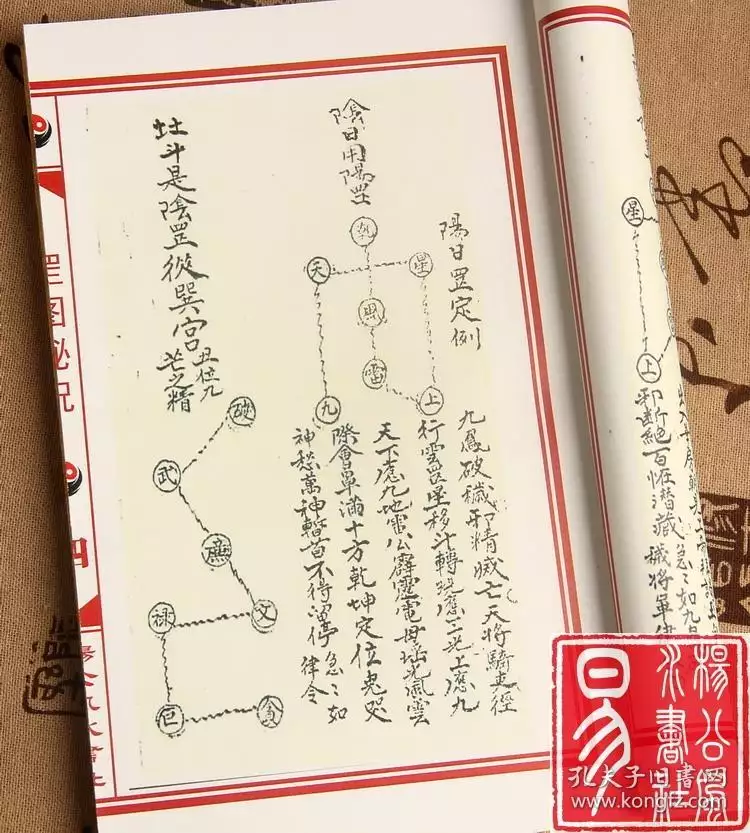 陽日罡定例
陰日用陽罡
契
天
星
照
雷
九
上
九鳳破穢邪精滅亡天將騎吏徑
行雲罡星移斗轉現應三光上應九
天下應九地雷公霹靂電母埳光風雲
際會罩滿十方乾坤定位鬼哭
神愁萬神暫首不得留停急〻如
律令
斗是陰罡從巽宮
丑位九
芒之精
破
武
廉
文
祿
巨
貪
罡图秘咒
四
星
上
邪斷絕百怪潛藏
急〻如九
將軍律
楊公風
水書社
易
孔夫子旧书网
www.kongfz.com